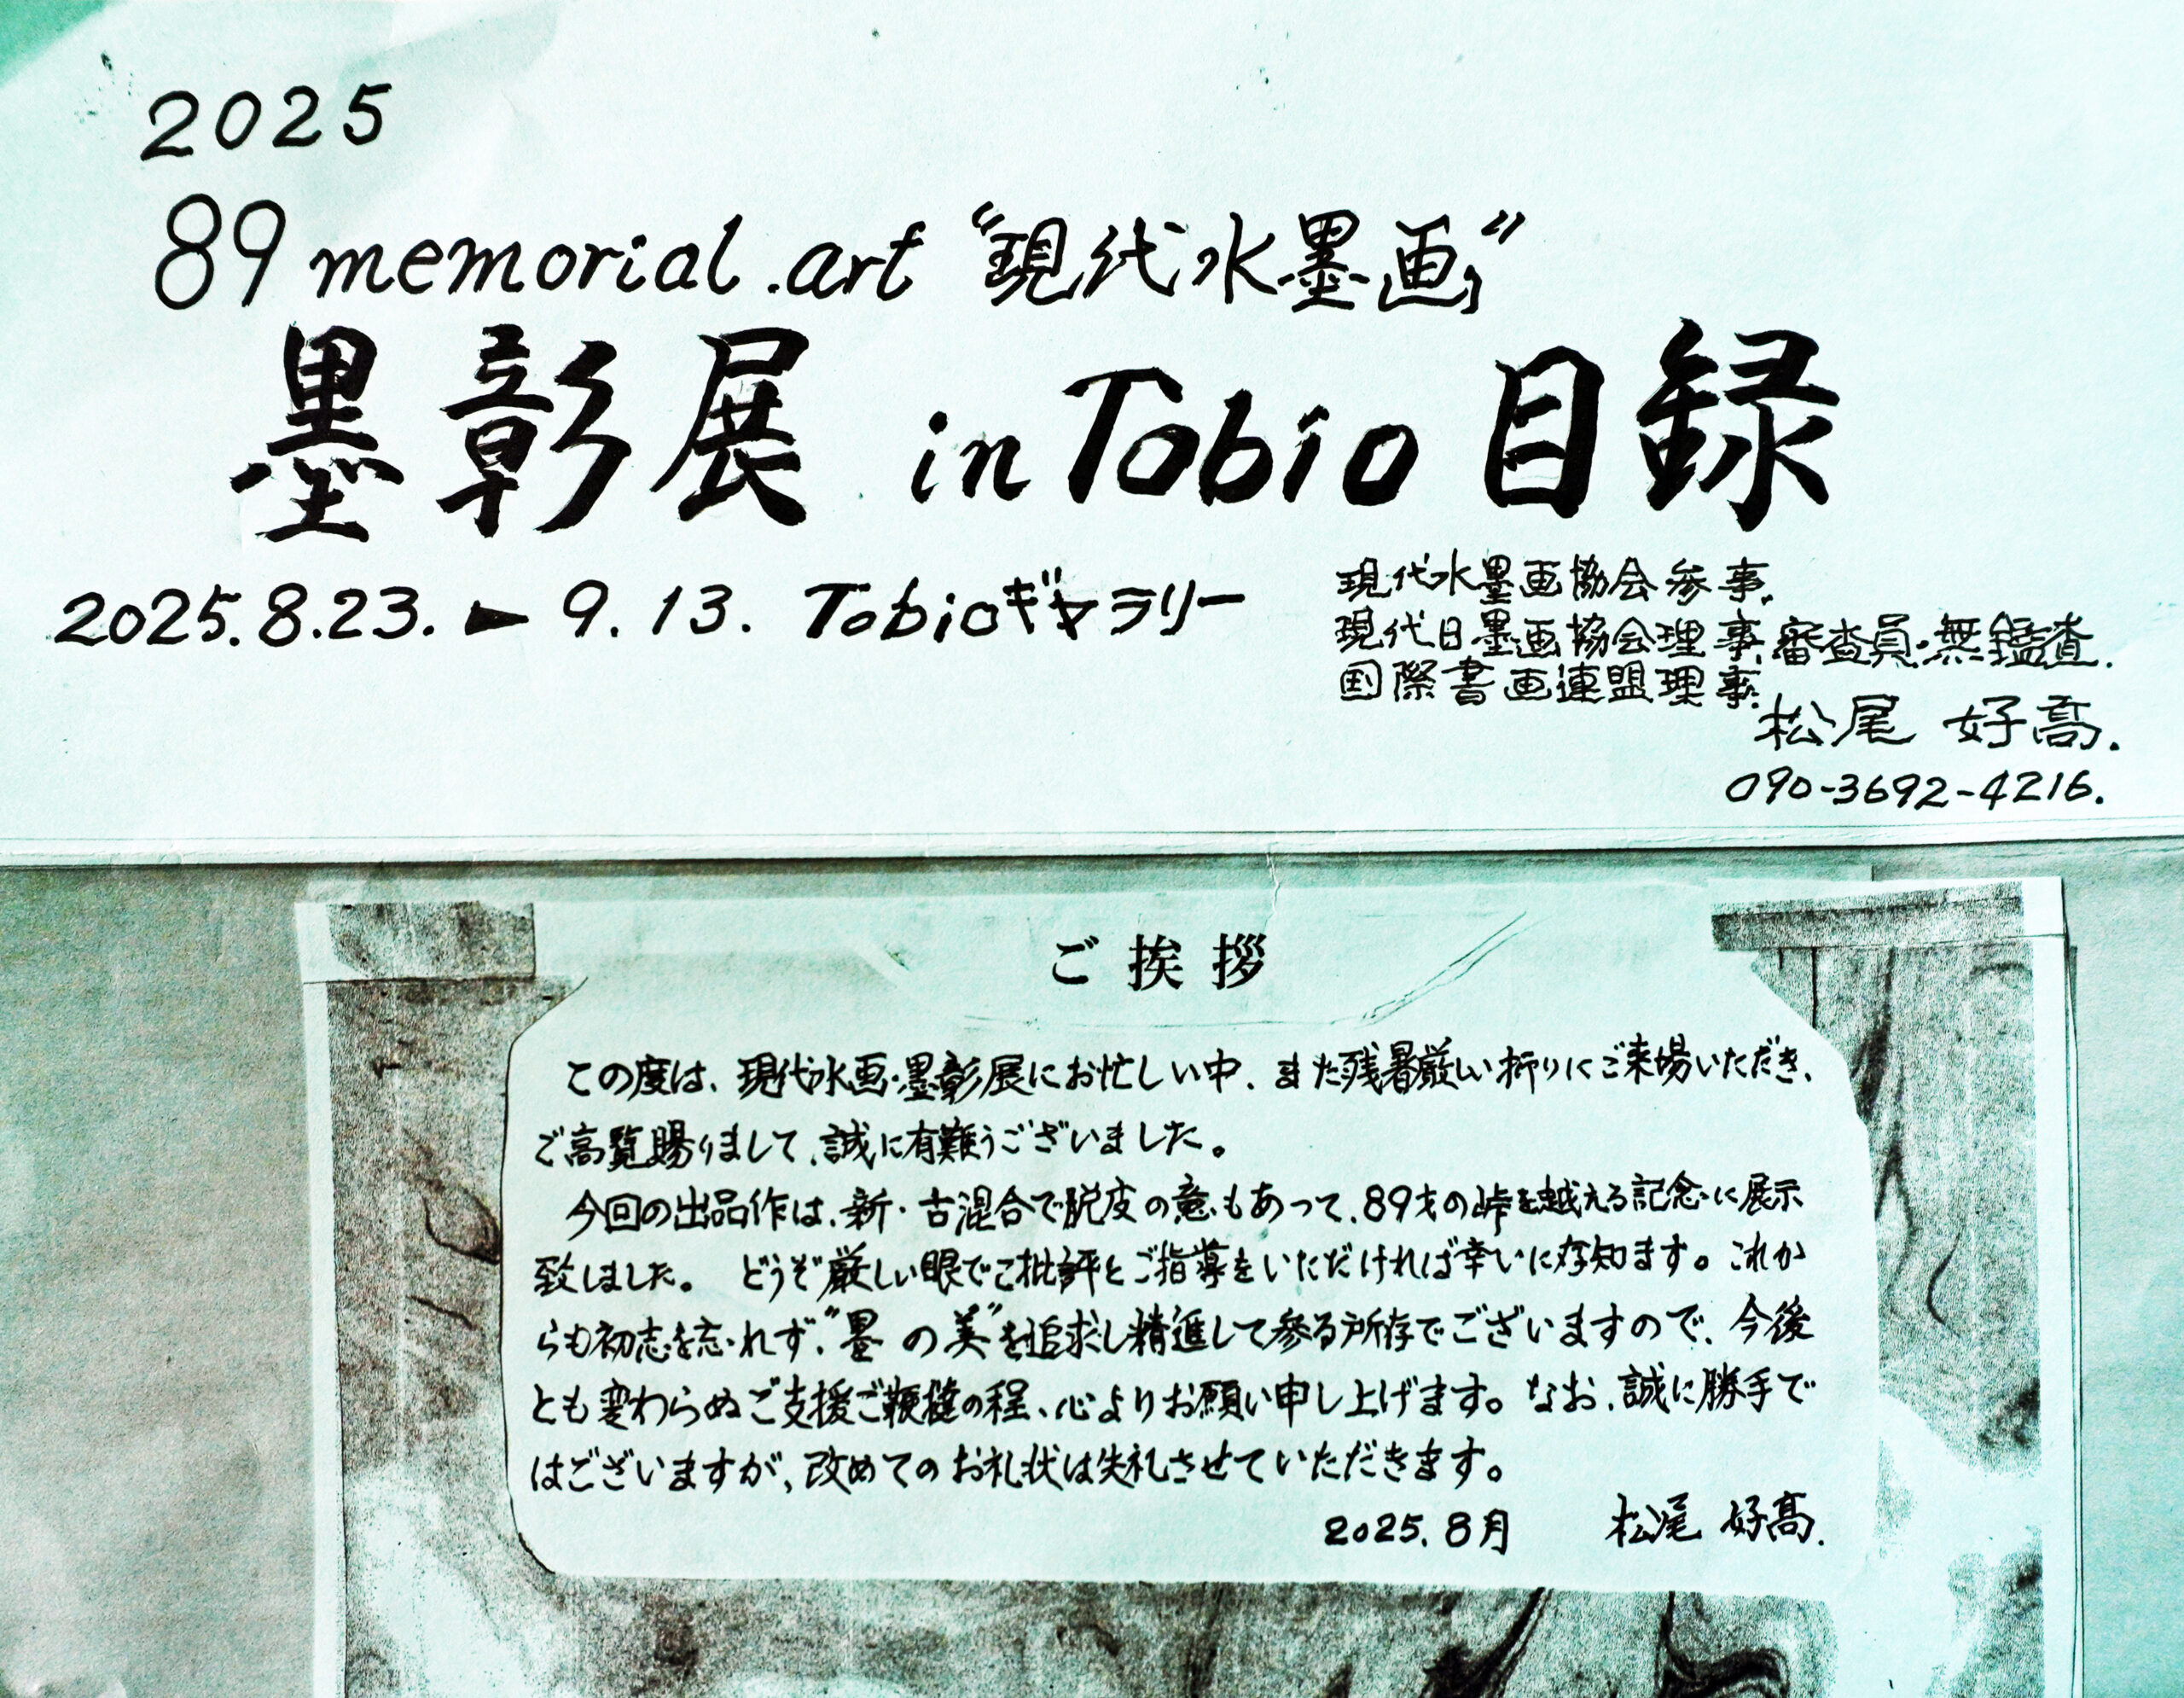 2025
89 memorial.art “現代水墨画”
墨彰展 in Tobio 目録
2025.8.23.▶9.13. Tobioギャラリー
現代水墨画協会参事.
現代日墨画協会理事.審査員・無鑑査.
国際書画連盟理事.
松尾 好髙.
090-3692-4216.
ご挨拶
この度は、現代水画・墨彰展にお忙しい中、また残暑厳しい折りにご来場いただき、
ご高覧賜りまして、誠に有難うございました。
今回の出品作は、新・古混合で脱皮の意もあって、89才の峠を越える記念に展示
致しました。 どうぞ厳しい眼でご批評とご指導をいただければ幸いに存知ます。これか
らも初志を忘れず、“墨の美”を追求し精進して参る所存でございますので、今後
とも変わらぬご支援ご鞭撻の程、心よりお願い申し上げます。なお、誠に勝手で
はございますが、改めてのお礼状は失礼させていただきます。
2025.8月 松尾 好髙.